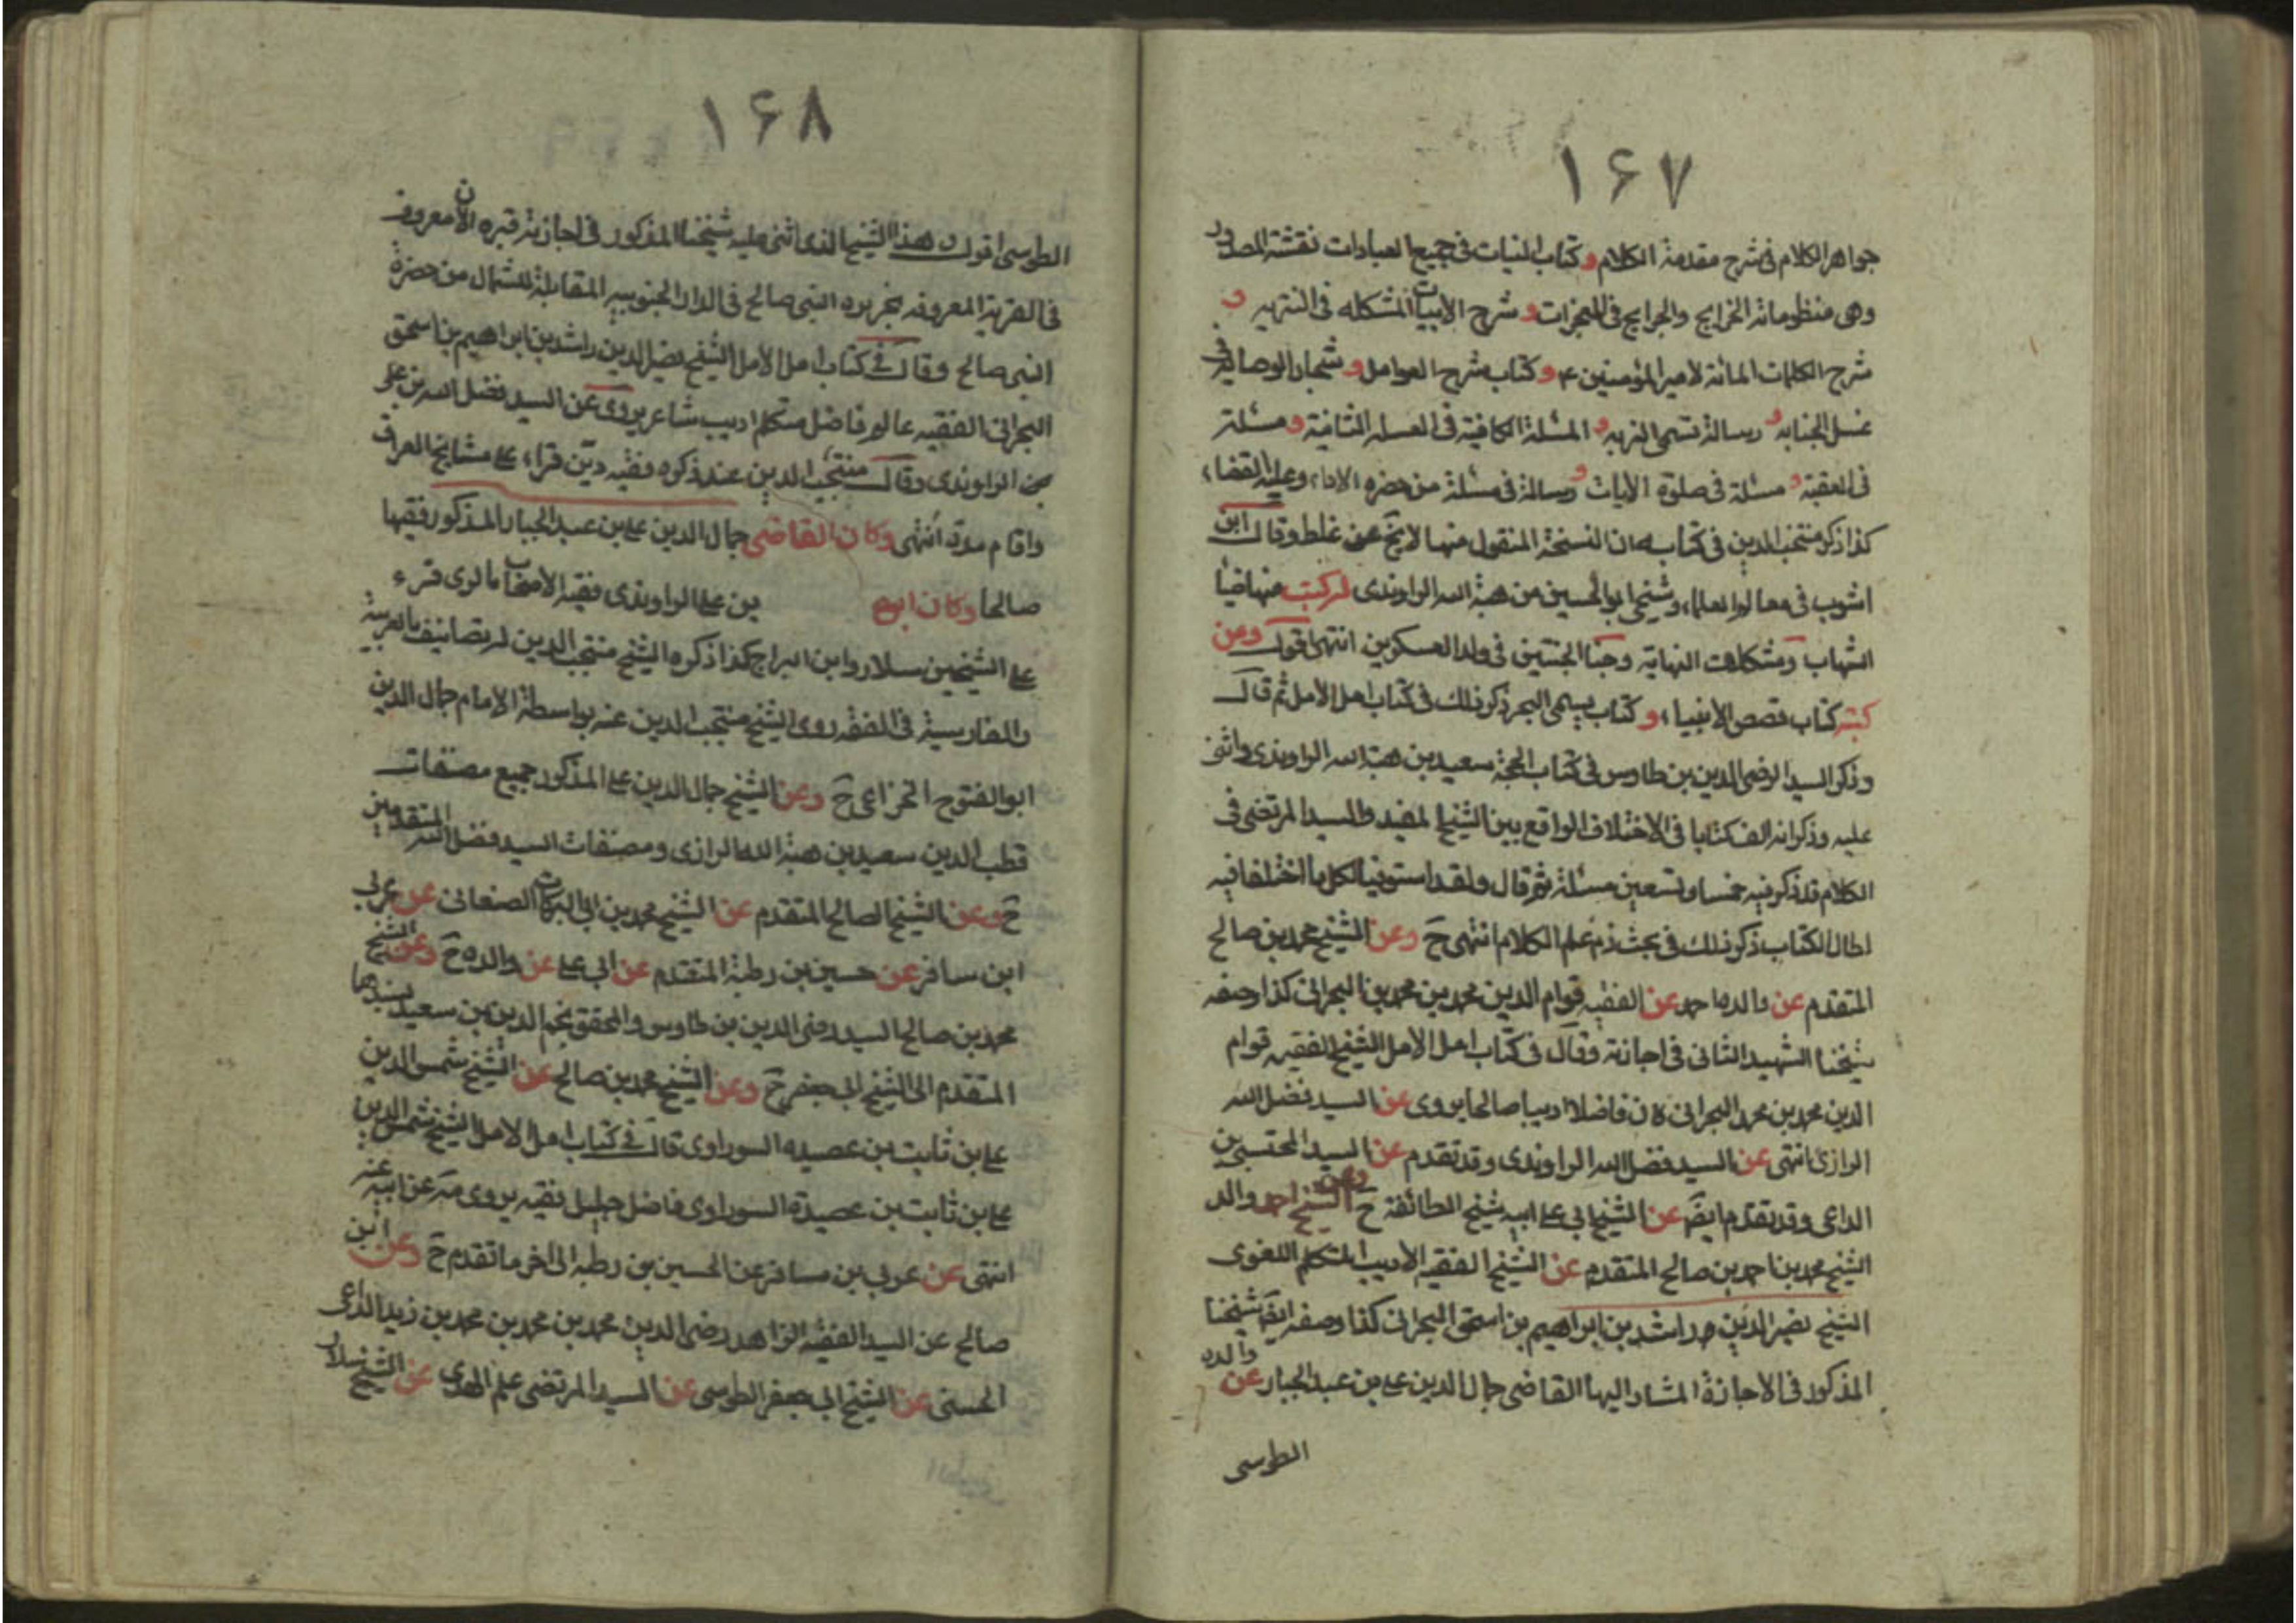 ۱۶۷
جواهر الكلام فى شرح مقدمة الكلام و كتاب النيات فى جميع العبادات نفثة المصدور
وهى منظوماته الخرايج والجرايج فى المعجزات و شرح الأبيات المشكله فى التنزيه و
شرح الكلمات المائة لامير المؤمنين ع و كتاب شرح العوامل و شجار العصابة فى
غسل الجنابه و رسالة تسمى النهيه و المسئلة الكافية فى الغسلة الثانية و مسئلة
فى العقيقة و مسئلة فى صلوة الايات و رسالة فى مسئلة من حضره الاداء وعليه القضاء
كذا ذكر منتجب الدين فى كتابه ان النسخة المنقول منها لا يخ عن غلط وقال ابن
اشوب فى معالم العلماء وشيخى ابو الحسين من هبة الله الراوندى لر كتب منها ضيا
الشهاب ومشكلات النهاية وجنا الجنتين فى ولد العسكريين انتهى اقول ومن
كتبه كتاب قصص الانبياء و كتاب يسمى البحر ذكر ذلك فى كتاب امل الأمل ثم قال
وذكر السيد الرضى الدين بن طاوس فى كتاب الحجة سعيد بن هبة الله الراوندى واثنى
عليه وذكر انه الف كتابا فى الاختلاف الواقع بين الشيخ المفيد والسيد المرتضى فى
الكلام قد ذكر فيه خمسا وتسعين مسئلة ثم قال ولقد استوفيا لكل ما اختلفا فيه
لطال الكتاب ذكر ذلك فى بحث ذم علم الكلام انتهى ح وعن الشيخ محمد بن صالح
المتقدم عن والده احمد عن الفقيه قوام الدين محمد بن محمد بن البحرانى كذا وصفه
شيخنا الشهيد الثانى فى اجازته وقال فى كتاب امل الامل الشيخ الفقيه قوام
الدين محمد بن محمد البحرانى كان فاضلا اديبا صالحا يروى عن السيد فضل الله
الرازى انتهى عن السيد فضل الله الراوندى وقد تقدم عن السيد المجتبى بن
الداعى وقد تقدم ايضا عن الشيخ ابى على ابيه شيخ الطائفة ح وعن الشيخ احمد والد
الشيخ محمد بن احمد بن صالح المتقدم عن الشيخ الفقيه الأديب المتكلم اللغوى
الشيخ نصير الدين راشد بن ابراهيم بن اسحق البحرانى كذا وصفه ايضا شيخنا
المذكور فى الاجازة المشار اليها القاضى جمال الدين على بن عبد الجبار عن والده
الطوسى
۱۶۸
الطوسى اقول ان هذا الشيخ الذى اثنى عليه شيخنا المذكور فى اجازته قبره الأن معروف
فى القرية المعروفه بجزيره النبى صالح فى الدار الجنوبيه المقابلة للشمال من حضرة
النبى صالح وقال فى كتاب امل الأمل الشيخ نصير الدين راشد بن ابراهيم بن اسحق
البحرانى الفقيه عالم فاضل متكلم اديب شاعر يروى عن السيد فضل الله بن على
بن الراوندى وقال منتجب الدين عند ذكره فقيه دين قراء على مشايخ العراق
واقام مدة انتهى وكان القاضى جمال الدين على بن عبد الجبار المذكور فقيها
صالحا وكان ابوه بن على الراوندى فقيه الأصحاب بالرى قرء
على الشيخين سلار وابن البراج كذا ذكره الشيخ منتجب الدين لر تصانيف بالعربية
والفارسية فى الفقه روى الشيخ منتجب الدين عنه بواسطة الإمام جمال الدين
ابو الفتوح الخزاعى ح وعن الشيخ جمال الدين على المذكور جميع مصنفات
قطب الدين سعيد بن هبة الله الرازى ومصنفات السيد فضل الله المتقدمين
ح وعن الشيخ الصالح المتقدم عن الشيخ محمد بن ابى البركات الصنعانى عن عربى
ابن سافر عن حسين بن رطبة المتقدم عن ابى على عن والده ح وعن الشيخ
محمد بن صالح السيد رضى الدين بن طاوس والمحقق نجم الدين بن سعيد بسندهما
المتقدم الى الشيخ ابى جعفر ح وعن الشيخ محمد بن صالح عن الشيخ شمس الدين
على بن ثابت بن عصيده السوراوى قال فى كتاب امل الامل الشيخ شمس الدين
على بن ثابت بن عصيدة السوراوى فاضل جليل فقيه يروى مه عن ابيه عنه
انتهى عن عربى بن مسافر عن الحسين بن رطبه الى اخر ما تقدم ح وعن ابن
صالح عن السيد الفقيه الزاهد رضى الدين محمد بن محمد بن محمد بن زيد الداعى
الحسنى عن الشيخ ابى جعفر الطوسى عن السيد المرتضى علم الهدى عن الشيخ سلار